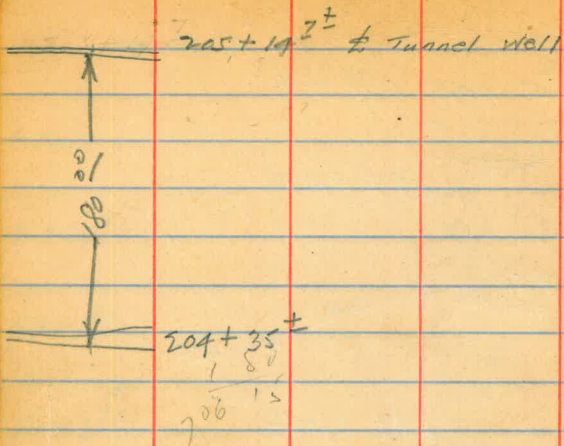 205+19 7± ℄ Tunnel Well
180
204+35±
1 80
206 15